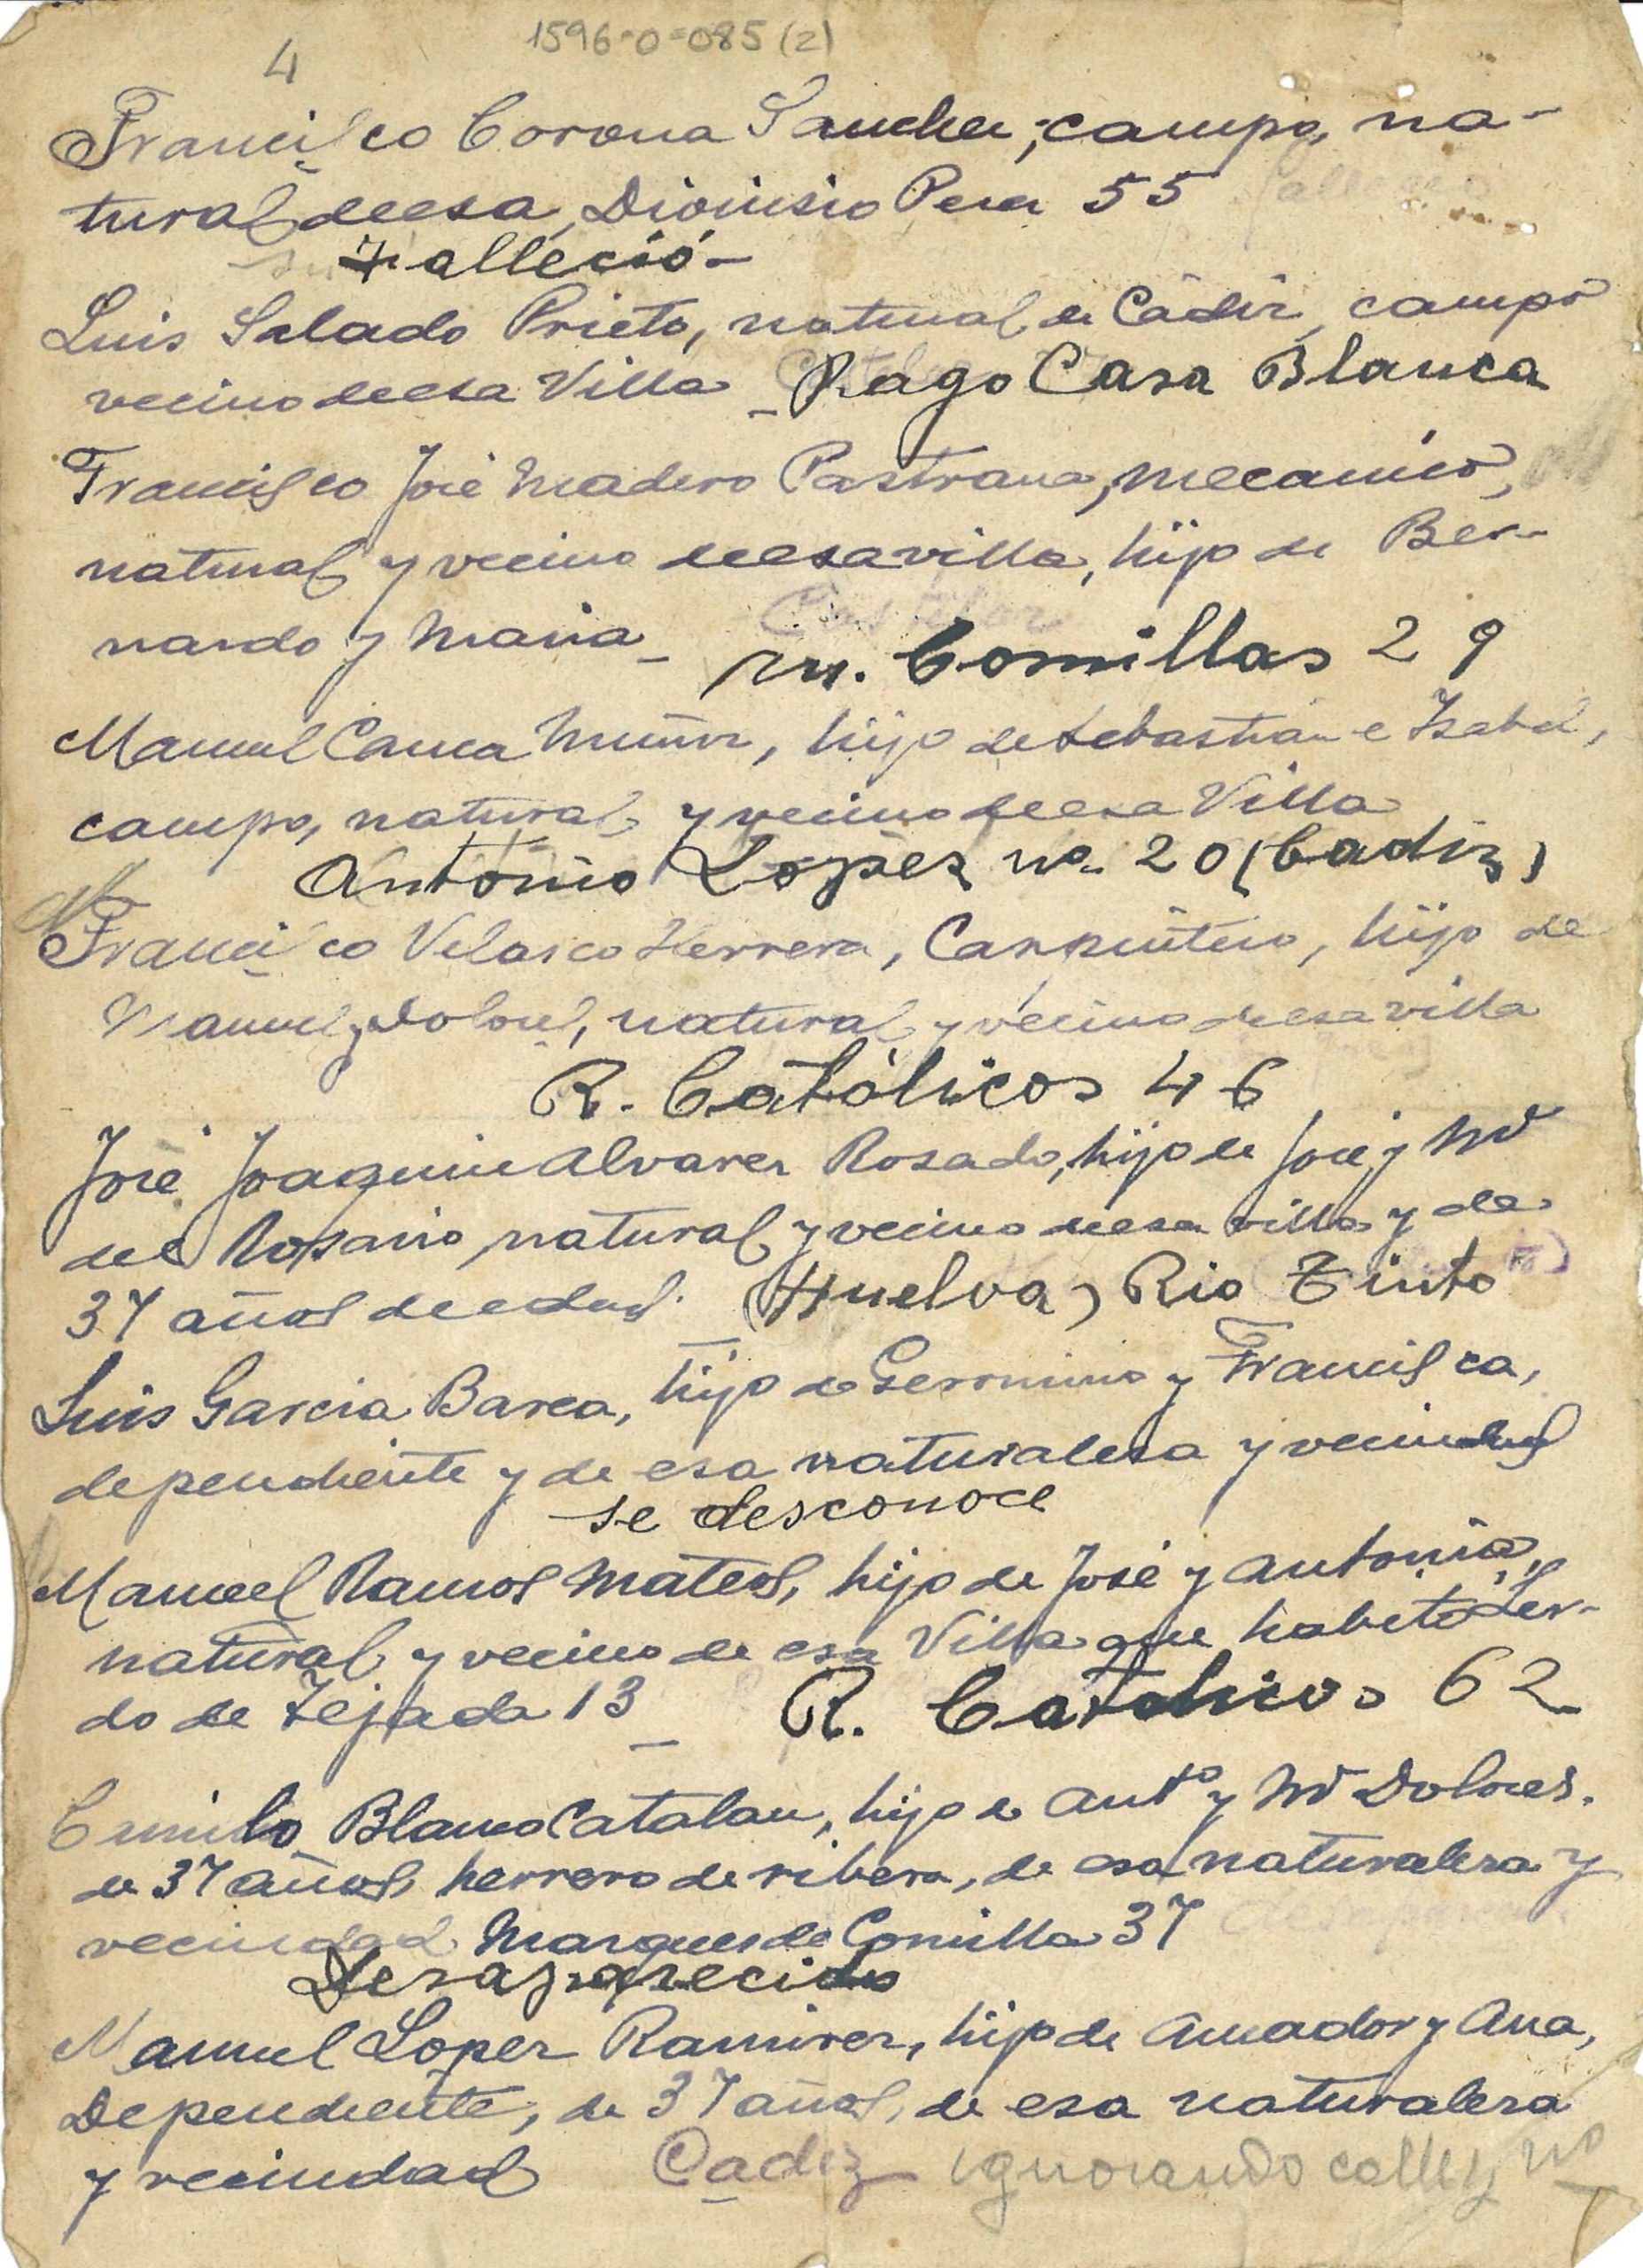 1596-0-085 (2)
4
Francisco Corona Sanchez, campo, na-
tural de esa, Dionisio Perez 55
Falleció-
Luis Salado Prieto, natural de Cádiz, campo
vecino de esa Villa - Pago Casa Blanca
Francisco José Madero Pastrana, mecanico,
natural y vecino de esa villa, hijo de Ber-
nardo y Maria - M. Comillas 29
Manuel Canca Muñoz, hijo de Sebastian e Isabel,
campo, natural y vecino de esa Villa
Antonio López nº 20 (Cadiz)
Francisco Velasco Herrera, Carpintero, hijo de
Manuel y Dolores, natural y vecino de esa villa
R. Católicos 46
José Joaquin Alvarez Rosado, hijo de José y Mª
del Rosario, natural y vecino de esa villa y de
37 años de edad. (Huelva) Rio Tinto
Luis Garcia Barea, hijo de Geronimo y Francisca,
dependiente y de esa naturalesa y vecindad
se desconoce
Manuel Ramos Mateos, hijo de José y Antonia,
natural y vecino de esa Villa que habitó Fer-
do de Tejada 13 - R. Catolicos 62
Camilo Blanco Catalan, hijo de Antº y Mª Dolores.
de 37 años, herrero de ribera, de esa naturaleza y
vecindad Marques de Comilla 37
Desaparecido
Manuel Lopez Ramirez, hijo de Amador y Ana,
Dependiente, de 37 años, de esa naturaleza
y vecindad Cadiz ignorando calle y nº